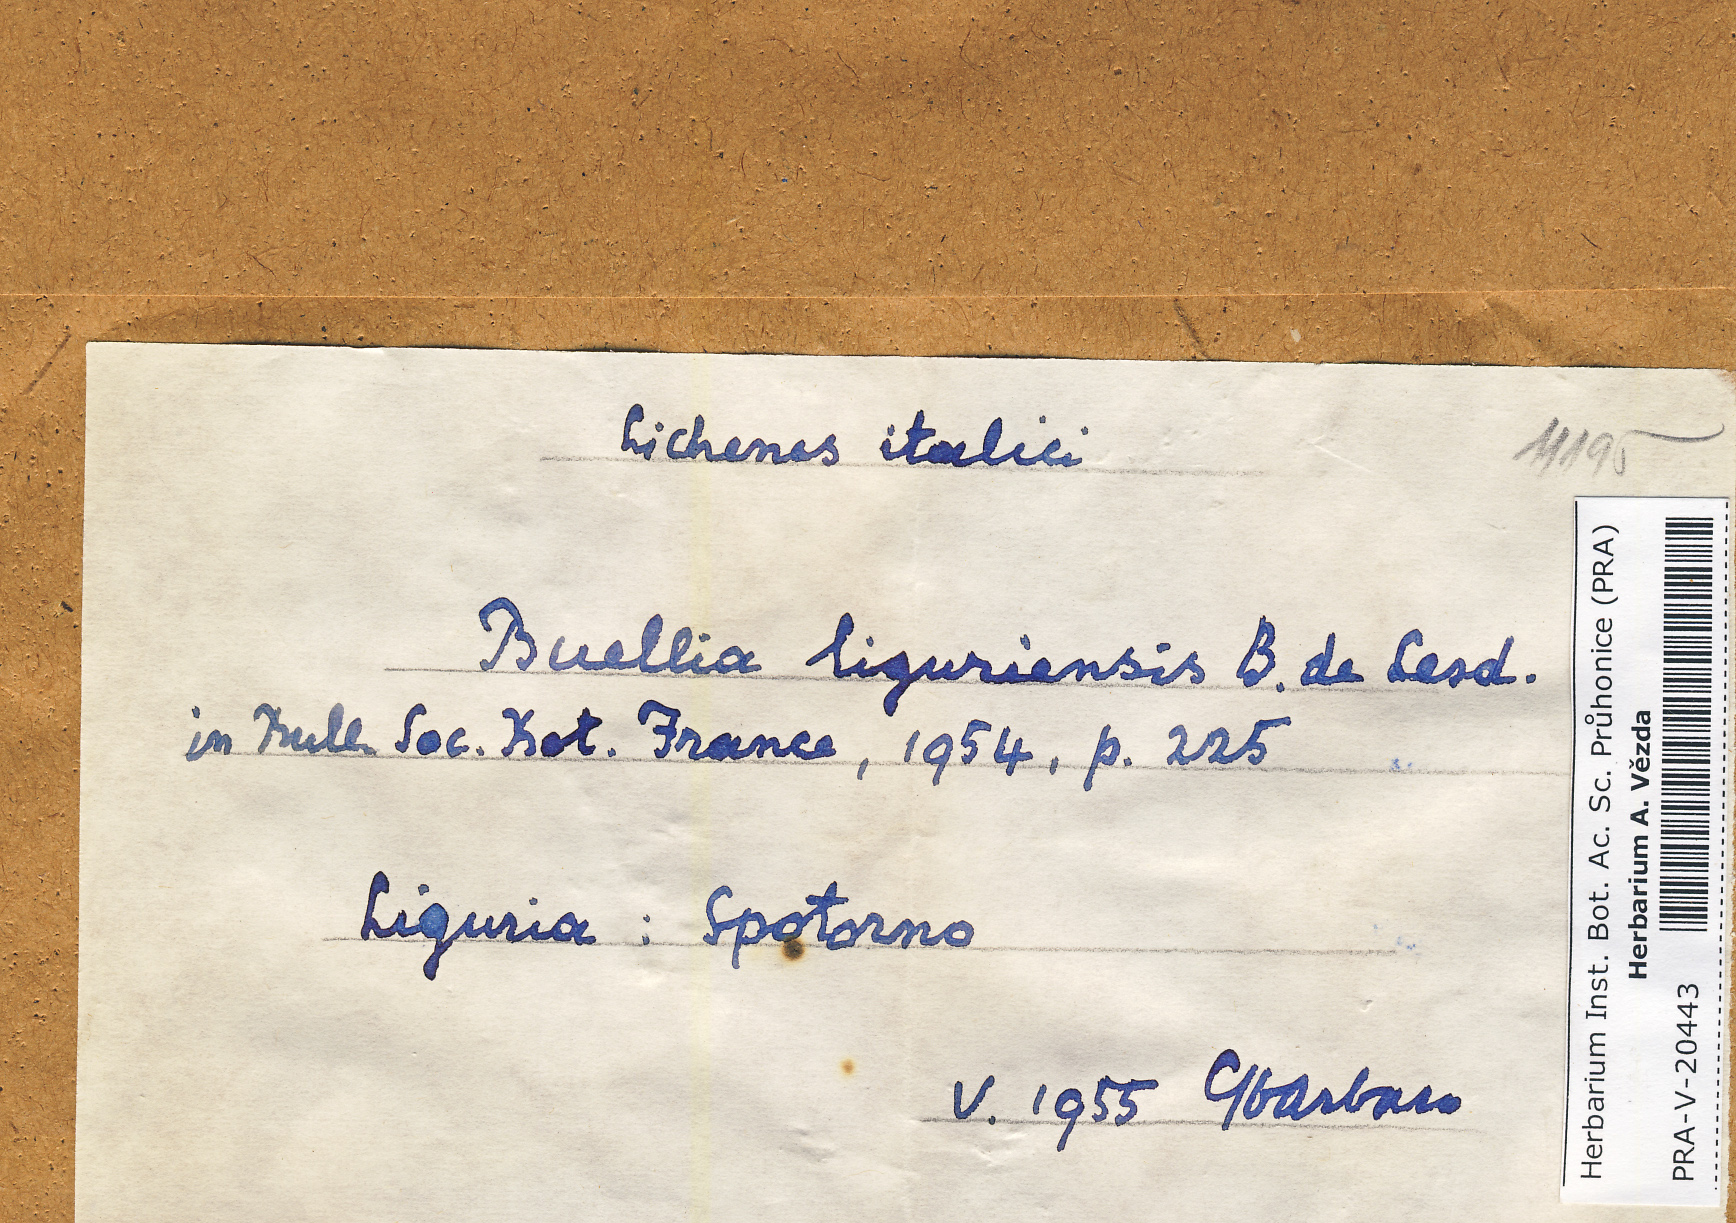 Lichenes italici
11195
Buellia liguriensis B. de Lesd.
in Bull. Soc. Bot. France, 1954, p. 225
Liguria : Spotorno
V. 1955 Sbarbaro
Herbarium Inst. Bot. Ac. Sc. Průhonice (PRA)
Herbarium A. Vězda
PRA-V-20443